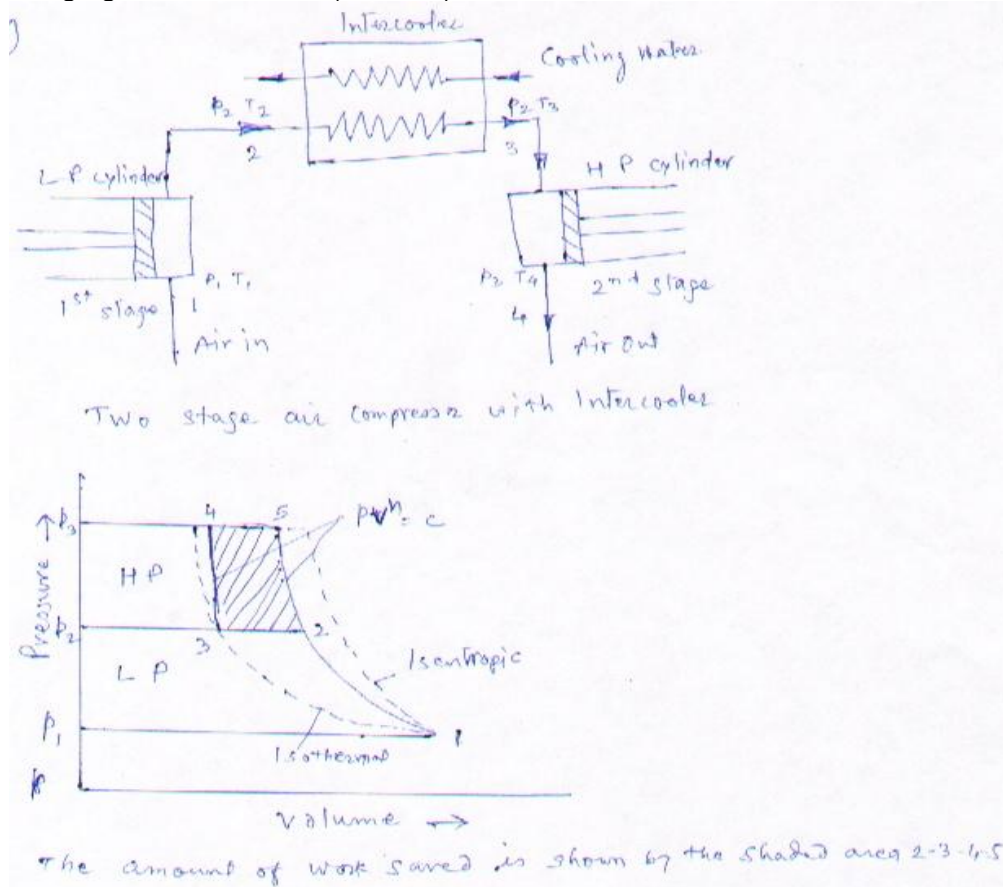 )
Intercooler
Cooling Water
P2 T2
P2 T3
2
3
L P cylinder
H P cylinder
P1 T1
P2 T4
1st stage
1
2nd stage
4
Air in
Air Out
Two stage air compressor with Intercooler
P3
4
5
PVn = C
H P
Pressure →
P2
3
2
L P
Isentropic
P1
1
Isothermal
Volume →
The amount of work saved is shown by the shaded area 2-3-4-5